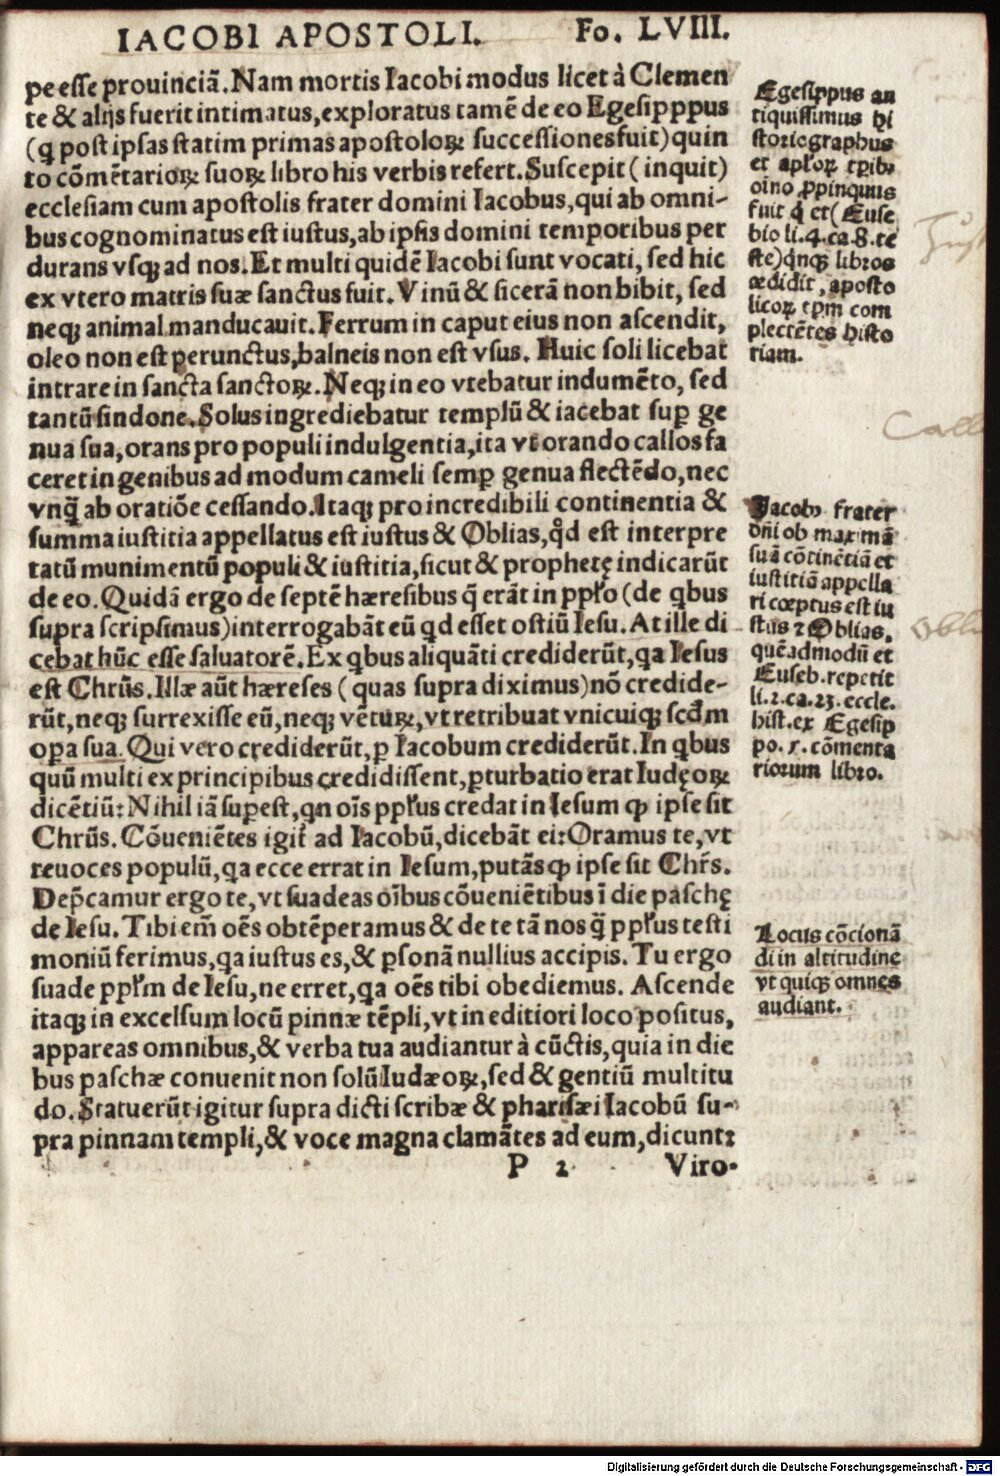 IACOBI APOSTOLI. Fo. LVIII.
pe esse prouinciā. Nam mortis Iacobi modus licet à Clemen
te & alijs fuerit intimatus, exploratus tamē de eo Egesipppus
(q̃ post ipsas statim primas apostoloꝝ successiones fuit) quin
to cōmētarioꝝ suoꝝ libro his verbis refert. Suscepit (inquit)
ecclesiam cum apostolis frater domini Iacobus, qui ab omni-
bus cognominatus est iustus, ab ipsis domini temporibus per
durans vsqꝫ ad nos. Et multi quidē Iacobi sunt vocati, sed hic
ex vtero matris suæ sanctus fuit. Vinū & sicerā non bibit, sed
neqꝫ animal manducauit. Ferrum in caput eius non ascendit,
oleo non est perunctus, balneis non est vsus. Huic soli licebat
intrare in sancta sanctoꝝ. Neqꝫ in eo vtebatur indumēto, sed
tantū sindone. Solus ingrediebatur templū & iacebat suꝑ ge
nua sua, orans pro populi indulgentia, ita vt orando callos fa
ceret in genibus ad modum cameli semꝑ genua flectēdo, nec
vnq̄ ab oratiōe cessando. Itaqꝫ pro incredibili continentia &
summa iustitia appellatus est iustus & Oblias, qd̓ est interpre
tatū munimentū populi & iustitia, sicut & prophetę indicarūt
de eo. Quidā ergo de septē hæresibus q̄ erāt in ppło (de qbus
supra scripsimus) interrogabāt eū qd esset ostiū Iesu. At ille di
cebat hūc esse saluatorē. Ex qbus aliquāti crediderūt, qa Iesus
est Chrūs. Illæ aūt hæreses (quas supra diximus) nō credide-
rūt, neqꝫ surrexisse eū, neqꝫ vētuꝝ, vt retribuat vnicuiqꝫ scđm
oꝑa sua. Qui vero crediderūt, ꝑ Iacobum crediderūt. In qbus
quū multi ex principibus credidissent, ꝑturbatio erat Iudęoꝝ
dicētiū: Nihil iā suꝑest, qn oīs ppłus credat in Iesum ꝙ ipse sit
Chrūs. Cōueniētes igit̄ ad Iacobū, dicebāt ei: Oramus te, vt
reuoces populū, qa ecce errat in Iesum, putās ꝙ ipse sit Chr̄s.
Dep̄camur ergo te, vt suadeas oībus cōueniētibus ī die paschę
de Iesu. Tibi em̄ oēs obtēperamus & de te tā nos q̄ ppłus testi
moniū ferimus, qa iustus es, & ꝑsonā nullius accipis. Tu ergo
suade ppłm de Iesu, ne erret, qa oēs tibi obediemus. Ascende
itaqꝫ in excelsum locū pinnæ tēpli, vt in editiori loco positus,
appareas omnibus, & verba tua audiantur à cūctis, quia in die
bus paschæ conuenit non solū Iudæoꝝ, sed & gentiū multitu
do. Statuerūt igitur supra dicti scribæ & pharisæi Iacobū su-
pra pinnam templi, & voce magna clamātes ad eum, dicunt:
P 2 Viro-
Egesippus an
tiquissimus hi
storiographus
et apłoꝝ tpibꝰ
oīno ꝓpinquus
fuit q̄ et (Euse
bio li. 4. ca. 8. te
ste) qnqꝫ libros
ædidit, aposto
licoꝝ tpm com
plectētes histo
riam.
Jacobꝰ frater
dn̄i ob maximā
suā cōtinētiā et
iustitiā appella
ri cœptus est iu
stus ⁊ Oblias,
quēadmodū et
Euseb. repetit
li. 2. ca. 23. eccle.
hist. ex Egesip
po. v. cōmenta
riorum libro.
Locus cōcionā
di in altitudine
vt quiqꝫ omnes
audiant.
Digitalisierung gefördert durch die Deutsche Forschungsgemeinschaft - DFG